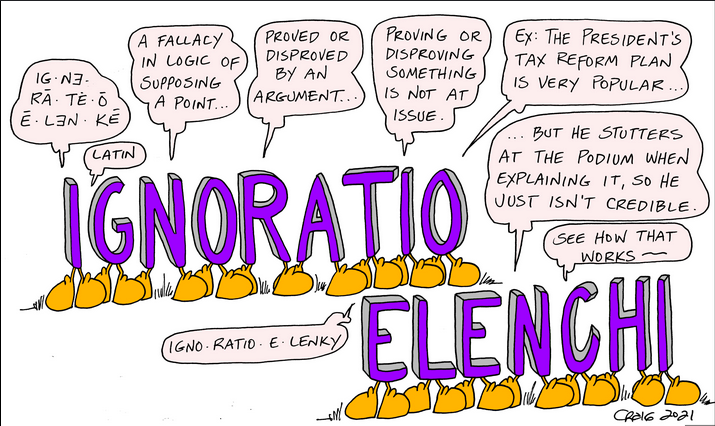 IG·NƎ·
RĀ·TĒ·Ō
Ē·LƎN·KĒ
LATIN
A FALLACY
IN LOGIC OF
SUPPOSING
A POINT...
PROVED OR
DISPROVED
BY AN
ARGUMENT...
PROVING OR
DISPROVING
SOMETHING
IS NOT AT
ISSUE.
EX: THE PRESIDENT'S
TAX REFORM PLAN
IS VERY POPULAR...
... BUT HE STUTTERS
AT THE PODIUM WHEN
EXPLAINING IT, SO HE
JUST ISN'T CREDIBLE.
SEE HOW THAT
WORKS
IGNORATIO
ELENCHI
IGNO·RATIO·E·LENKY
CRAIG 2021